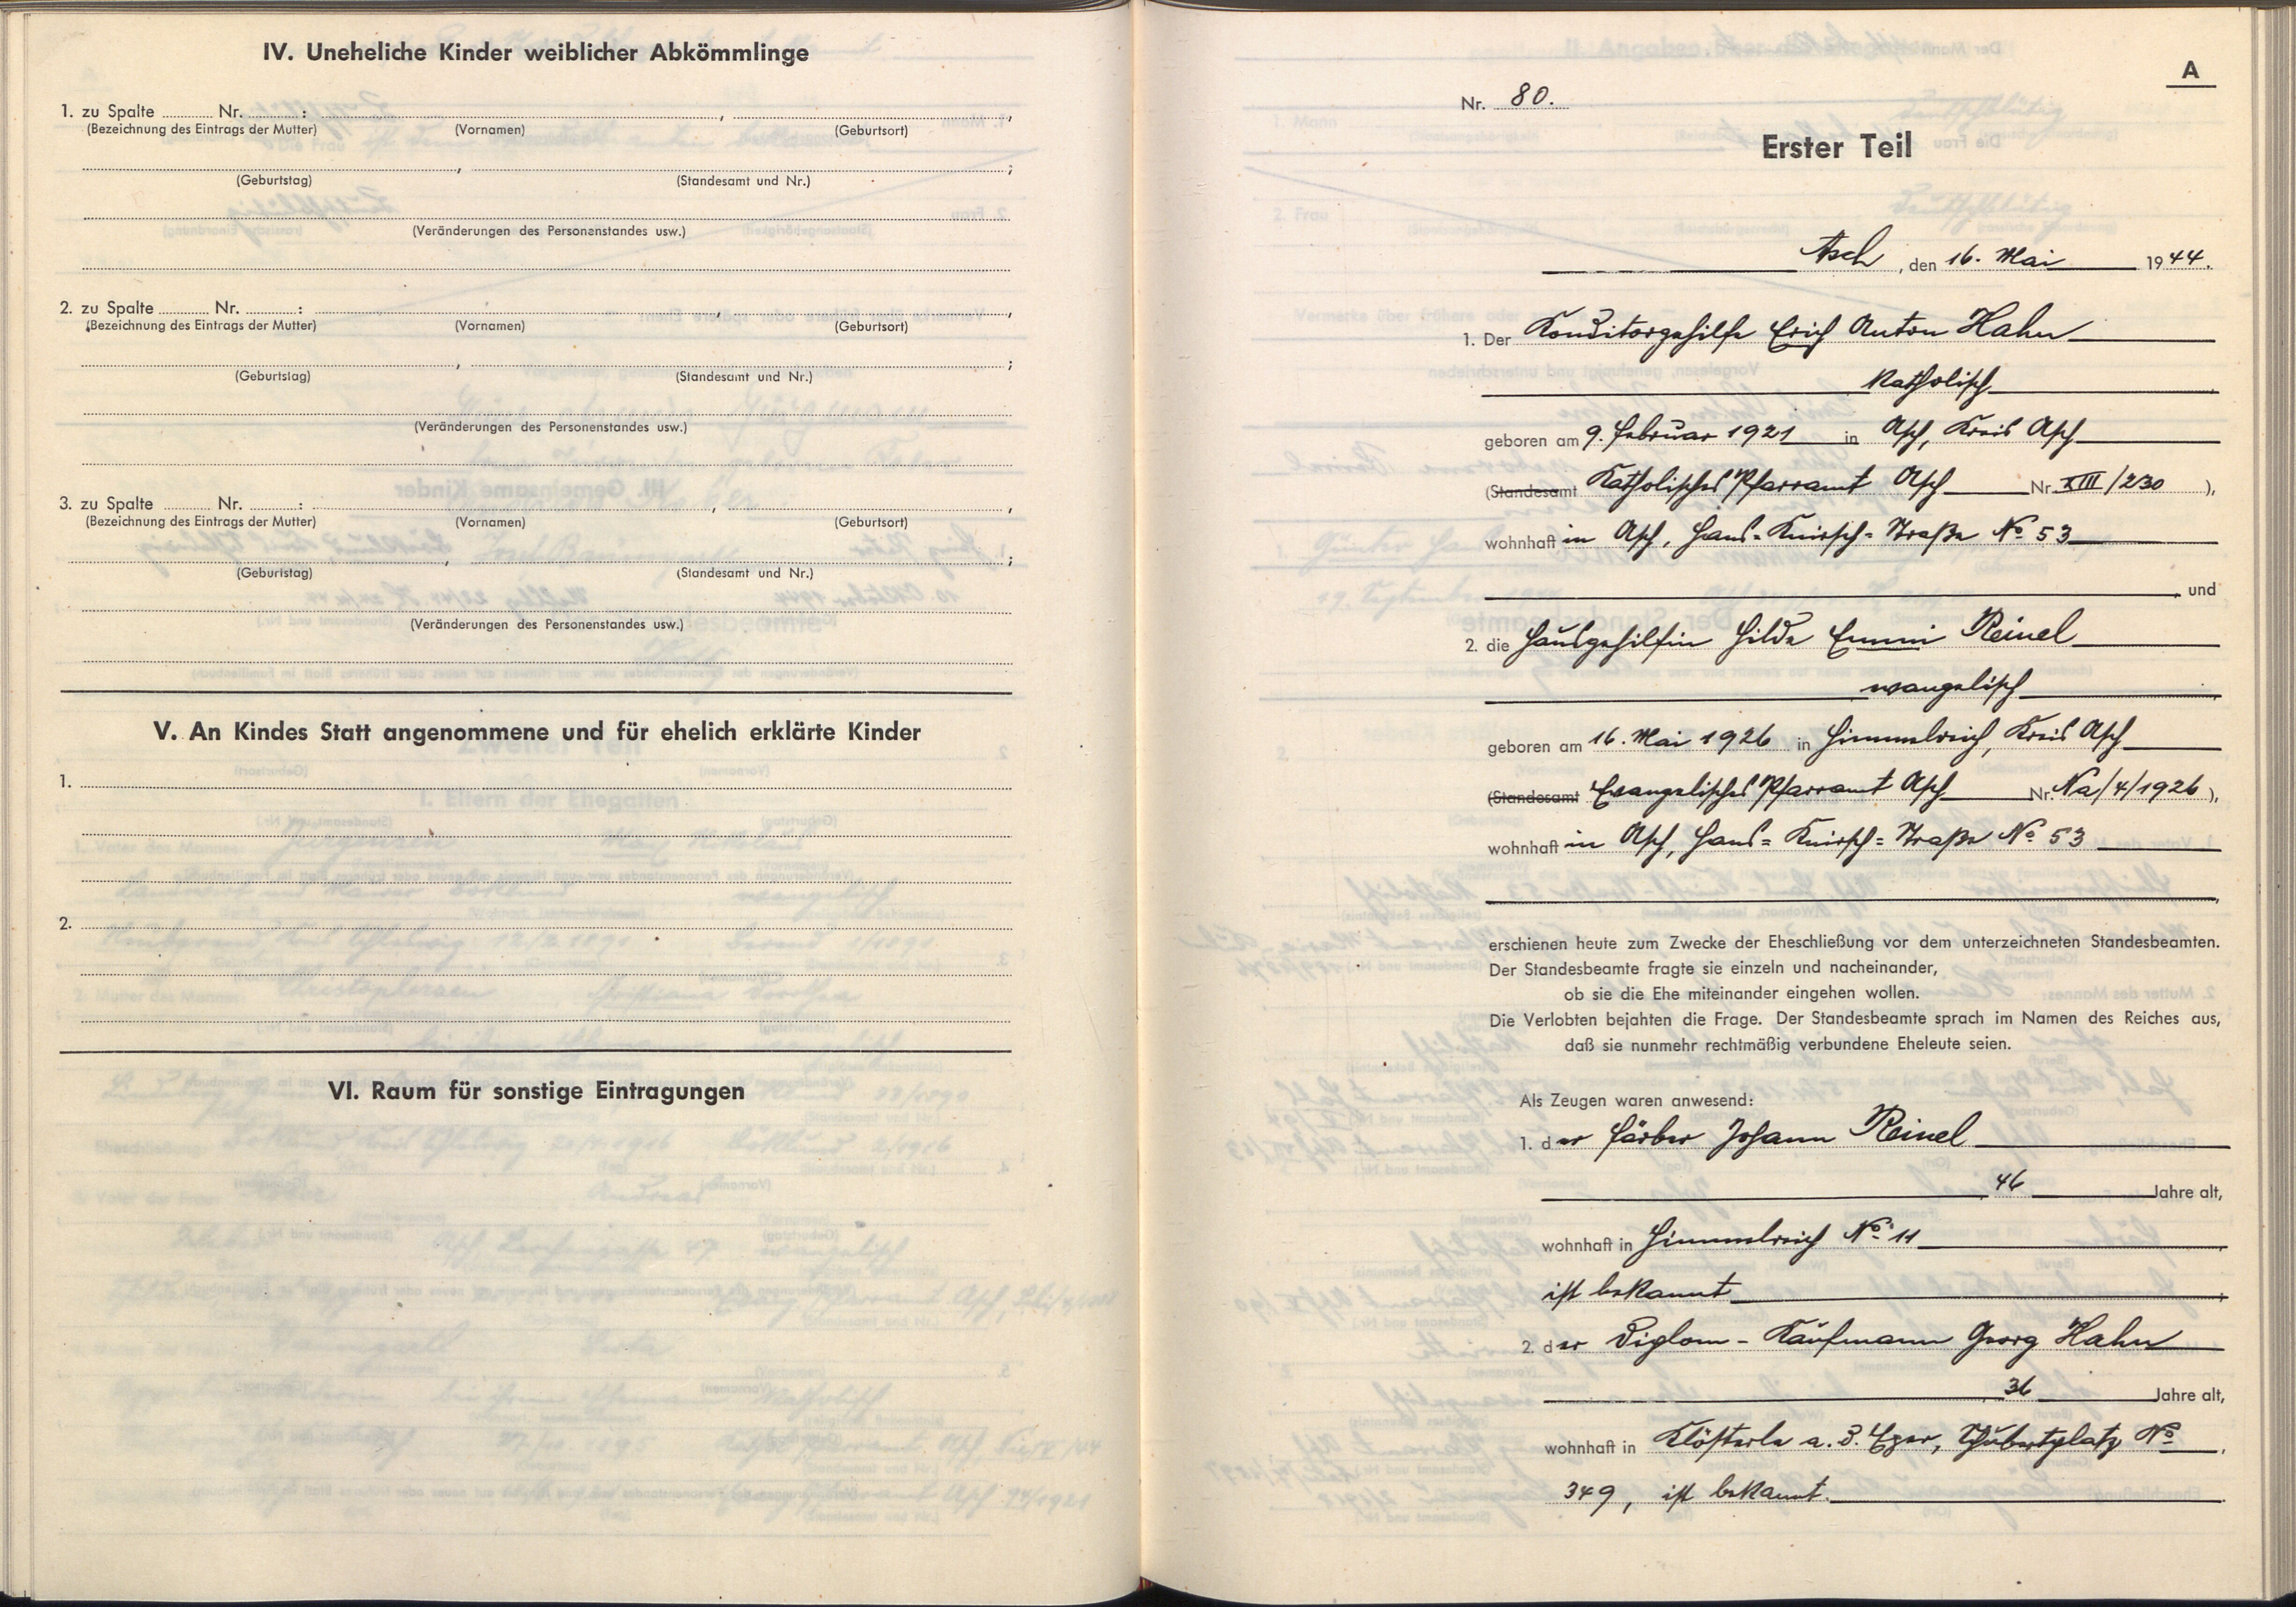 IV. Uneheliche Kinder weiblicher Abkömmlinge
1. zu Spalte Nr. : , ,
(Bezeichnung des Eintrags der Mutter) (Vornamen) (Geburtsort)
, ;
(Geburtstag) (Standesamt und Nr.)
(Veränderungen des Personenstandes usw.)
2. zu Spalte Nr. : , ,
(Bezeichnung des Eintrags der Mutter) (Vornamen) (Geburtsort)
, ;
(Geburtstag) (Standesamt und Nr.)
(Veränderungen des Personenstandes usw.)
3. zu Spalte Nr. : , ,
(Bezeichnung des Eintrags der Mutter) (Vornamen) (Geburtsort)
, ;
(Geburtstag) (Standesamt und Nr.)
(Veränderungen des Personenstandes usw.)
V. An Kindes Statt angenommene und für ehelich erklärte Kinder
1.
2.
VI. Raum für sonstige Eintragungen
A
Nr. 80.
Erster Teil
Asch, den 16. Mai 1944.
1. Der Konditorgehilfe Erich Anton Hahn
katholisch,
geboren am 9. Februar 1921 in Asch, Kreis Asch
(Standesamt Katholisches Pfarramt Asch Nr. XIII/230 ),
wohnhaft in Asch, Hans-Knirsch-Straße No 53
, und
2. die Hausgehilfin Hilde Emmi Reinel
evangelisch,
geboren am 16. Mai 1926 in Himmelreich, Kreis Asch
(Standesamt Evangelisches Pfarramt Asch Nr. Na/4/1926 ),
wohnhaft in Asch, Hans-Knirsch-Straße No 53
,
erschienen heute zum Zwecke der Eheschließung vor dem unterzeichneten Standesbeamten.
Der Standesbeamte fragte sie einzeln und nacheinander,
ob sie die Ehe miteinander eingehen wollen.
Die Verlobten bejahten die Frage. Der Standesbeamte sprach im Namen des Reiches aus,
daß sie nunmehr rechtmäßig verbundene Eheleute seien.
Als Zeugen waren anwesend:
1. der Färber Johann Reinel
46 Jahre alt,
wohnhaft in Himmelreich No 11,
ist bekannt,
2. der Diplom-Kaufmann Georg Hahn
36 Jahre alt,
wohnhaft in Klösterle a. d. Eger, Schubertplatz No,
349, ist bekannt.